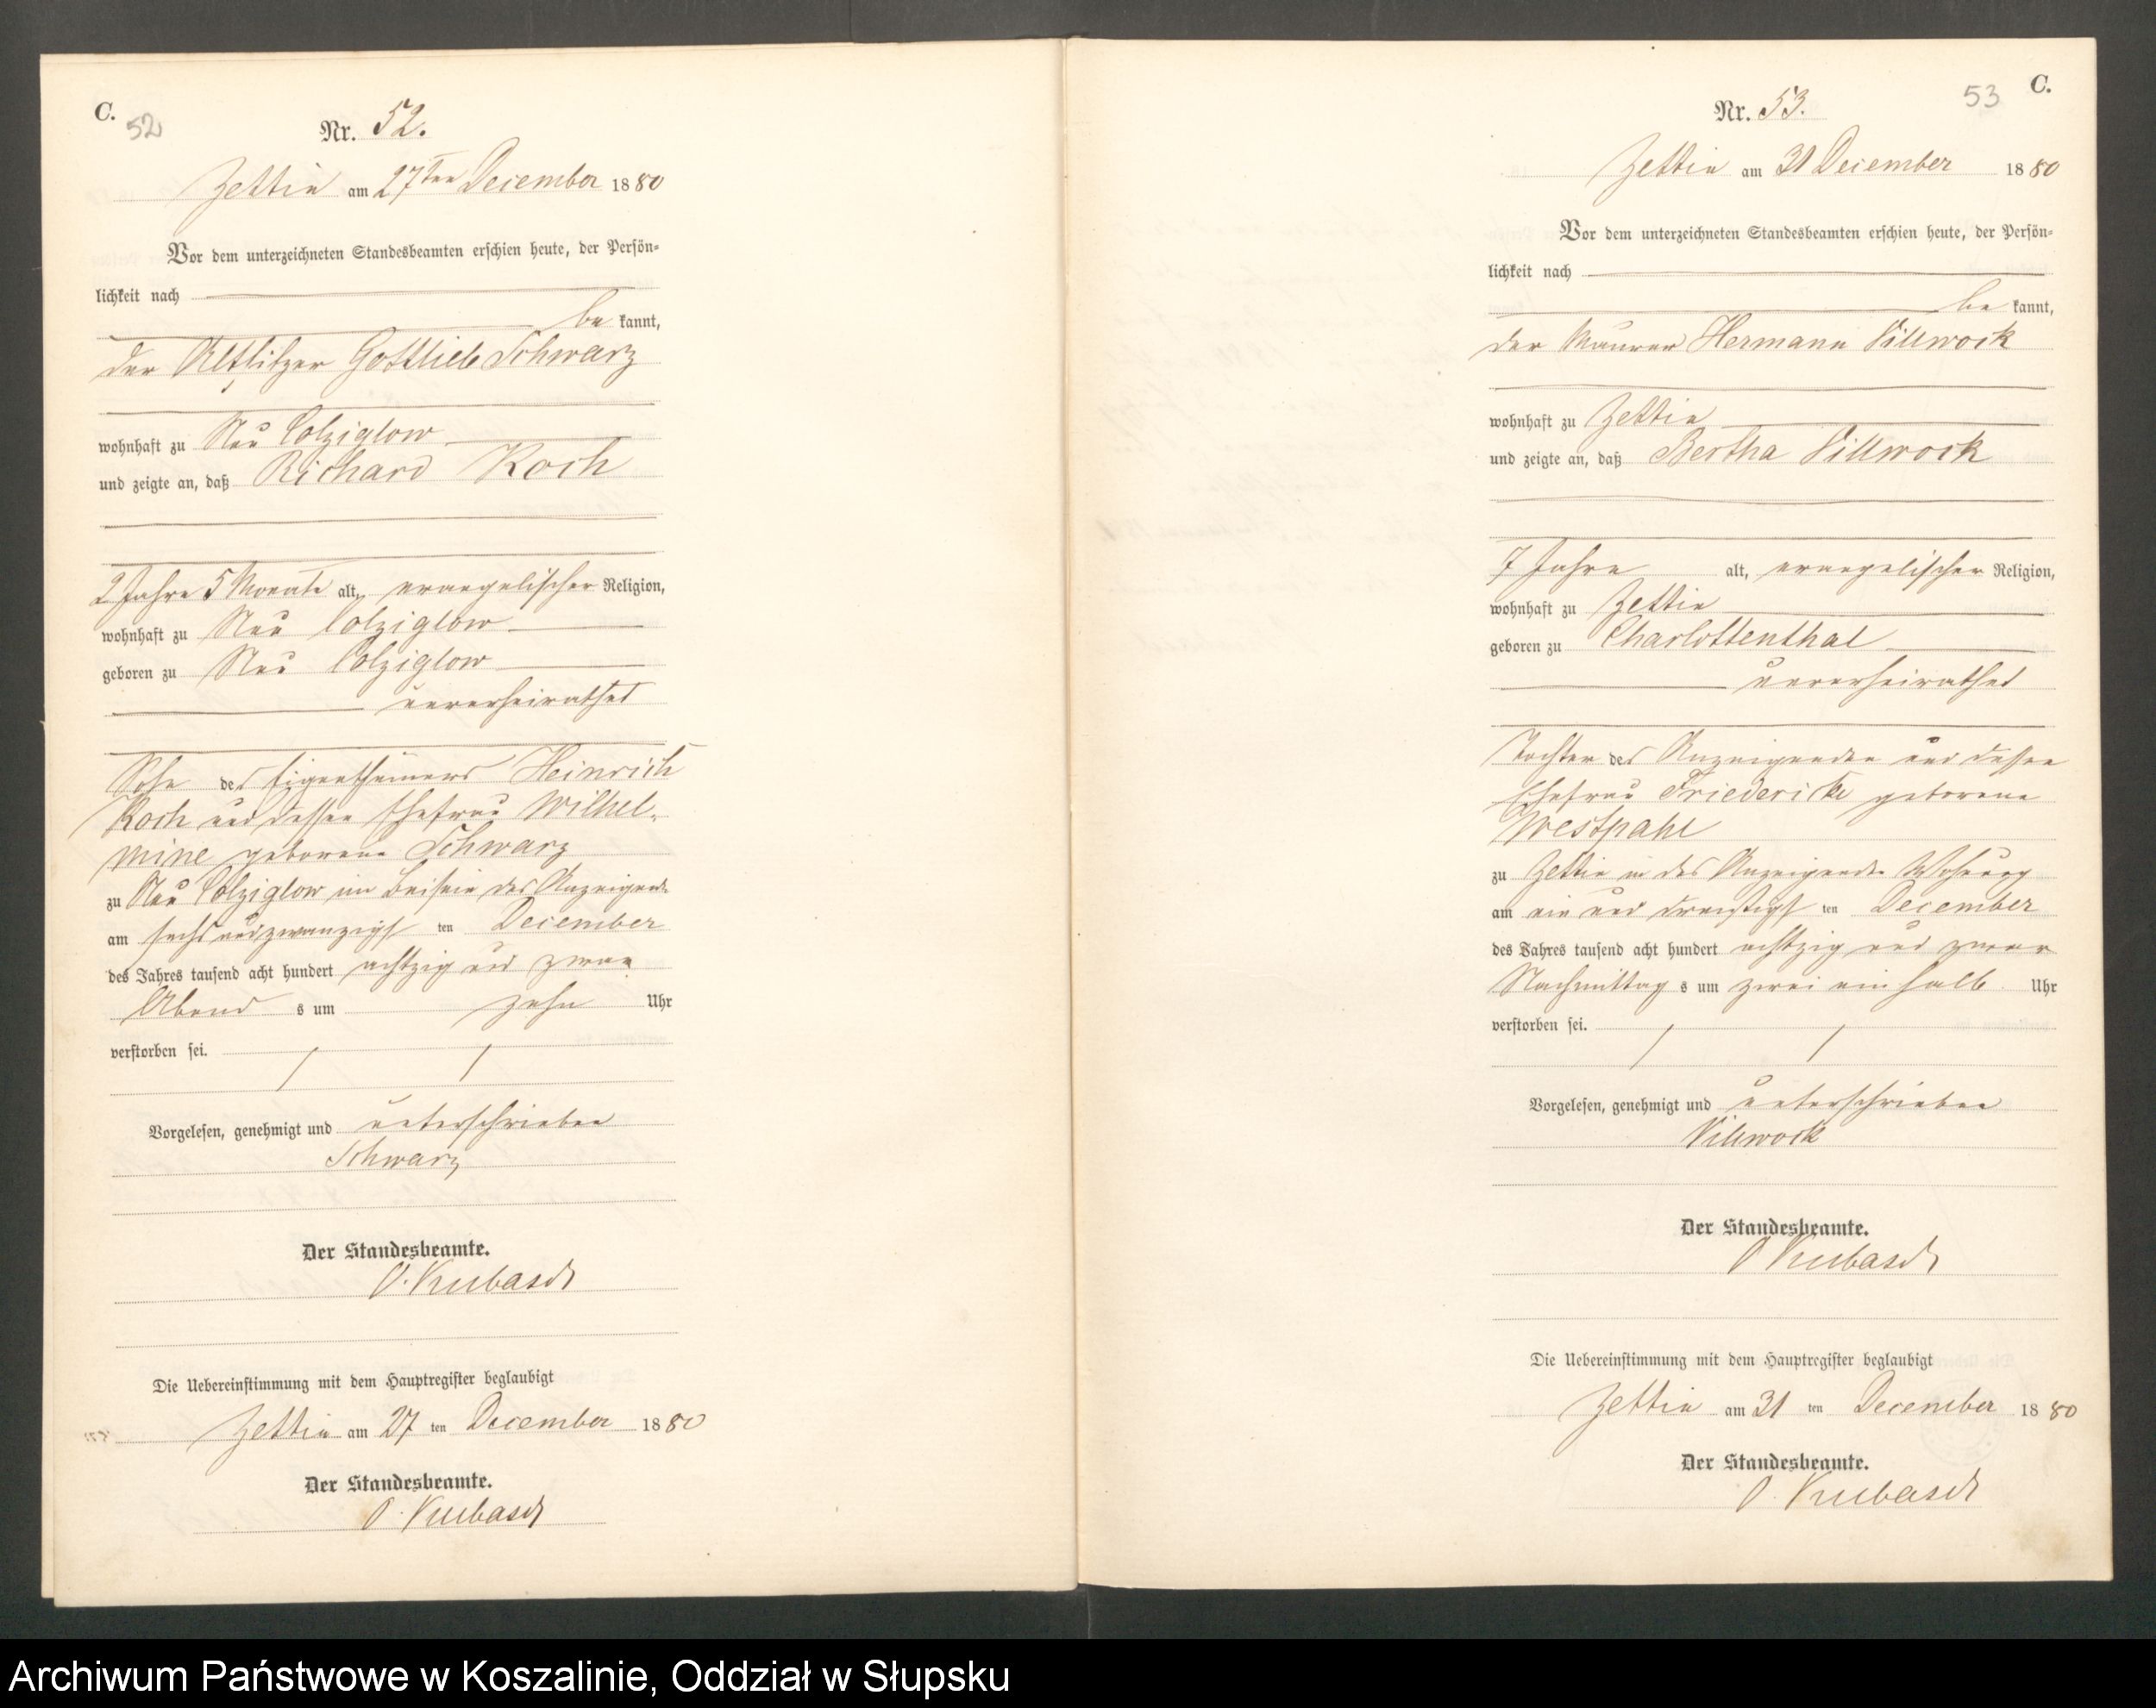 C.
52
Nr. 52.
Zettin am 27ten December 1880
Vor dem unterzeichneten Standesbeamten erschien heute, der Persön-
lichkeit nach
be kannt,
der Altsitzer Gottlieb Schwarz
wohnhaft zu Neu Colziglow
und zeigte an, daß Richard Koch
2 Jahre 5 Monate alt, evangelischer Religion,
wohnhaft zu Neu Colziglow
geboren zu Neu Colziglow
unverheirathet
Sohn des Eigenthümers Heinrich
Koch und dessen Ehefrau Wilhel-
mine geborene Schwarz
zu Neu Colziglow im Beisein des Anzeigende
am sechs und zwanzigst ten December
des Jahres tausend acht hundert achtzig und zwar
Abend s um zehn Uhr
verstorben sei.
Vorgelesen, genehmigt und unterschrieben
Schwarz
Der Standesbeamte.
O. Kubasch
Die Uebereinstimmung mit dem Hauptregister beglaubigt
Zettin am 27 ten December 1880
Der Standesbeamte.
O. Kubasch
53 C.
Nr. 53.
Zettin am 31 December 1880
Vor dem unterzeichneten Standesbeamten erschien heute, der Persön-
lichkeit nach
be kannt,
der Maurer Hermann Villwock
wohnhaft zu Zettin
und zeigte an, daß Bertha Villwock
7 Jahre alt, evangelischer Religion,
wohnhaft zu Zettin
geboren zu Charlottenthal
unverheirathet
Tochter des Anzeigenden und dessen
Ehefrau Friedericke geborene
Westpahl
zu Zettin in des Anzeigende Wohnung
am ein und dreißigst ten December
des Jahres tausend acht hundert achtzig und zwar
Nachmittag s um zwei ein halb Uhr
verstorben sei.
Vorgelesen, genehmigt und unterschrieben
Villwock
Der Standesbeamte.
O Kubasch
Die Uebereinstimmung mit dem Hauptregister beglaubigt
Zettin am 31 ten December 1880
Der Standesbeamte.
O. Kubasch
Archiwum Państwowe w Koszalinie, Oddział w Słupsku